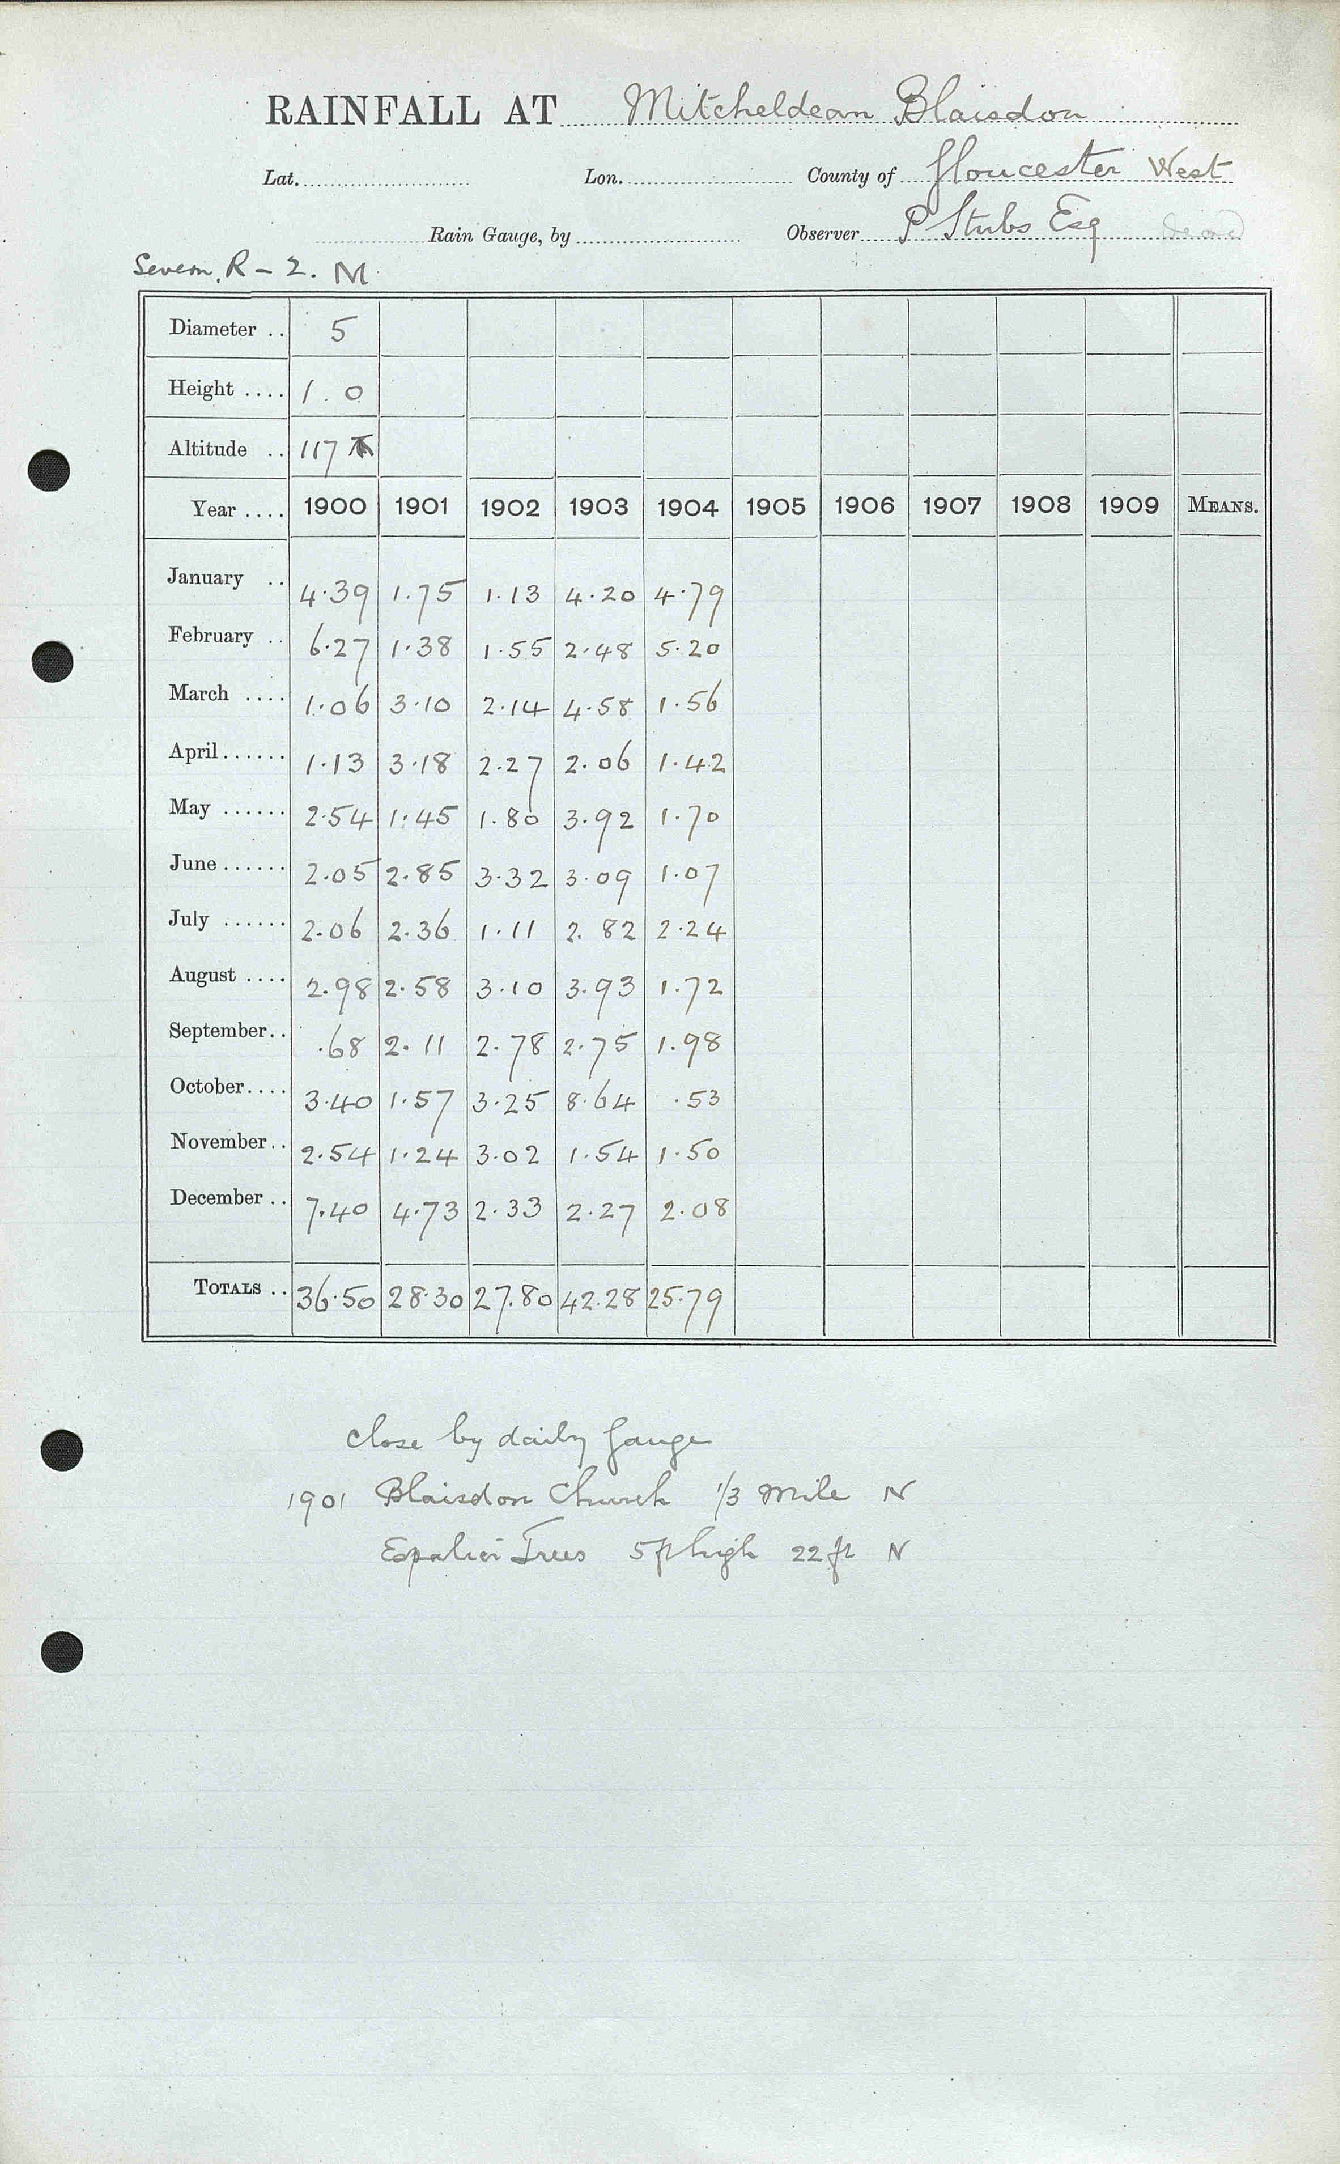 RAINFALL AT Mitcheldean Blaisdon
Lat. Lon. County of Gloucester West
Rain Gauge, by Observer P Stubs Esq dead
Severn. R - 2. M
Diameter .. 5
Height .... 1.0
Altitude .. 117
Year .... 1900 1901 1902 1903 1904 1905 1906 1907 1908 1909 MEANS.
January .. 4.39 1.75 1.13 4.20 4.79
February .. 6.27 1.38 1.55 2.48 5.20
March .... 1.06 3.10 2.14 4.58 1.56
April...... 1.13 3.18 2.27 2.06 1.42
May ...... 2.54 1.45 1.80 3.92 1.70
June...... 2.05 2.85 3.32 3.09 1.07
July ...... 2.06 2.36 1.11 2.82 2.24
August .... 2.98 2.58 3.10 3.93 1.72
September.. .68 2.11 2.78 2.75 1.98
October.... 3.40 1.57 3.25 8.64 .53
November.. 2.54 1.24 3.02 1.54 1.50
December .. 7.40 4.73 2.33 2.27 2.08
TOTALS .. 36.50 28.30 27.80 42.28 25.79
close by daily gauge
1901 Blaisdon Church 1/3 mile N
Espalier Trees 5ft high 22 ft N